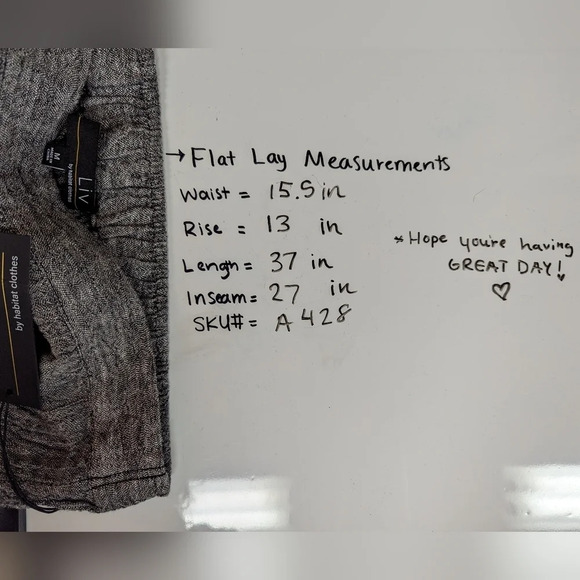 → Flat Lay Measurements
Waist = 15.5 in
Rise = 13 in
Length = 37 in
Inseam = 27 in
SKU# = A428
* Hope you're having
GREAT DAY!
♡
LIV
by habitat clothes
M
by habitat clothes